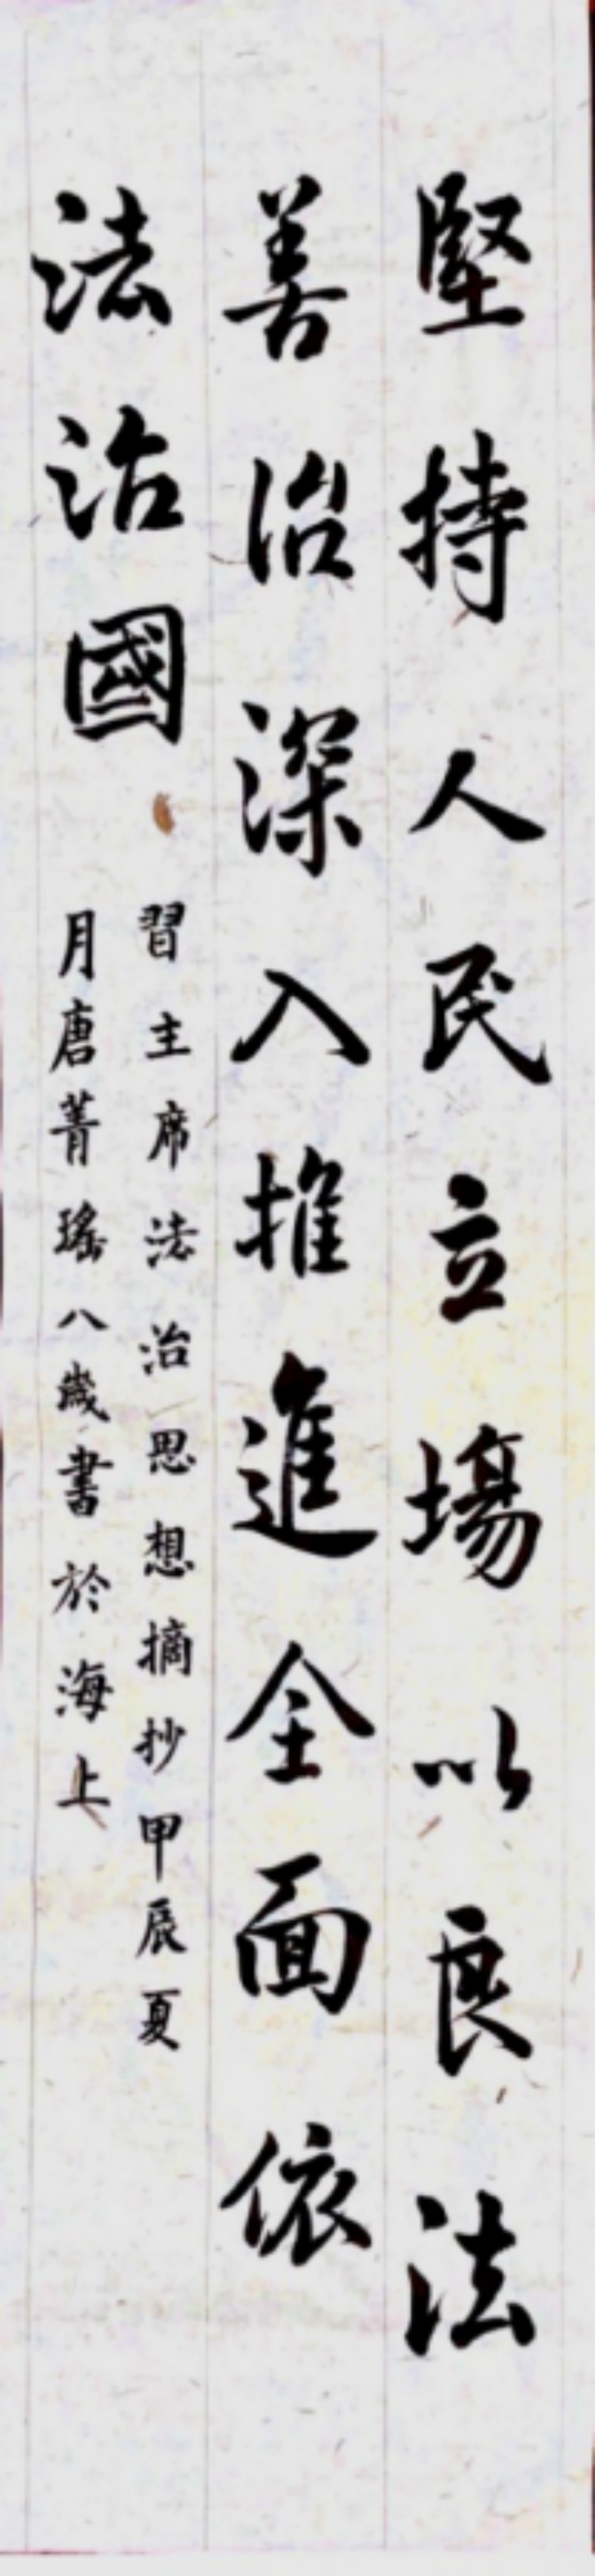 堅持人民立場以良法
善治深入推進全面依
法治國
習主席法治思想摘抄甲辰夏
月唐菁瑤八歲書於海上